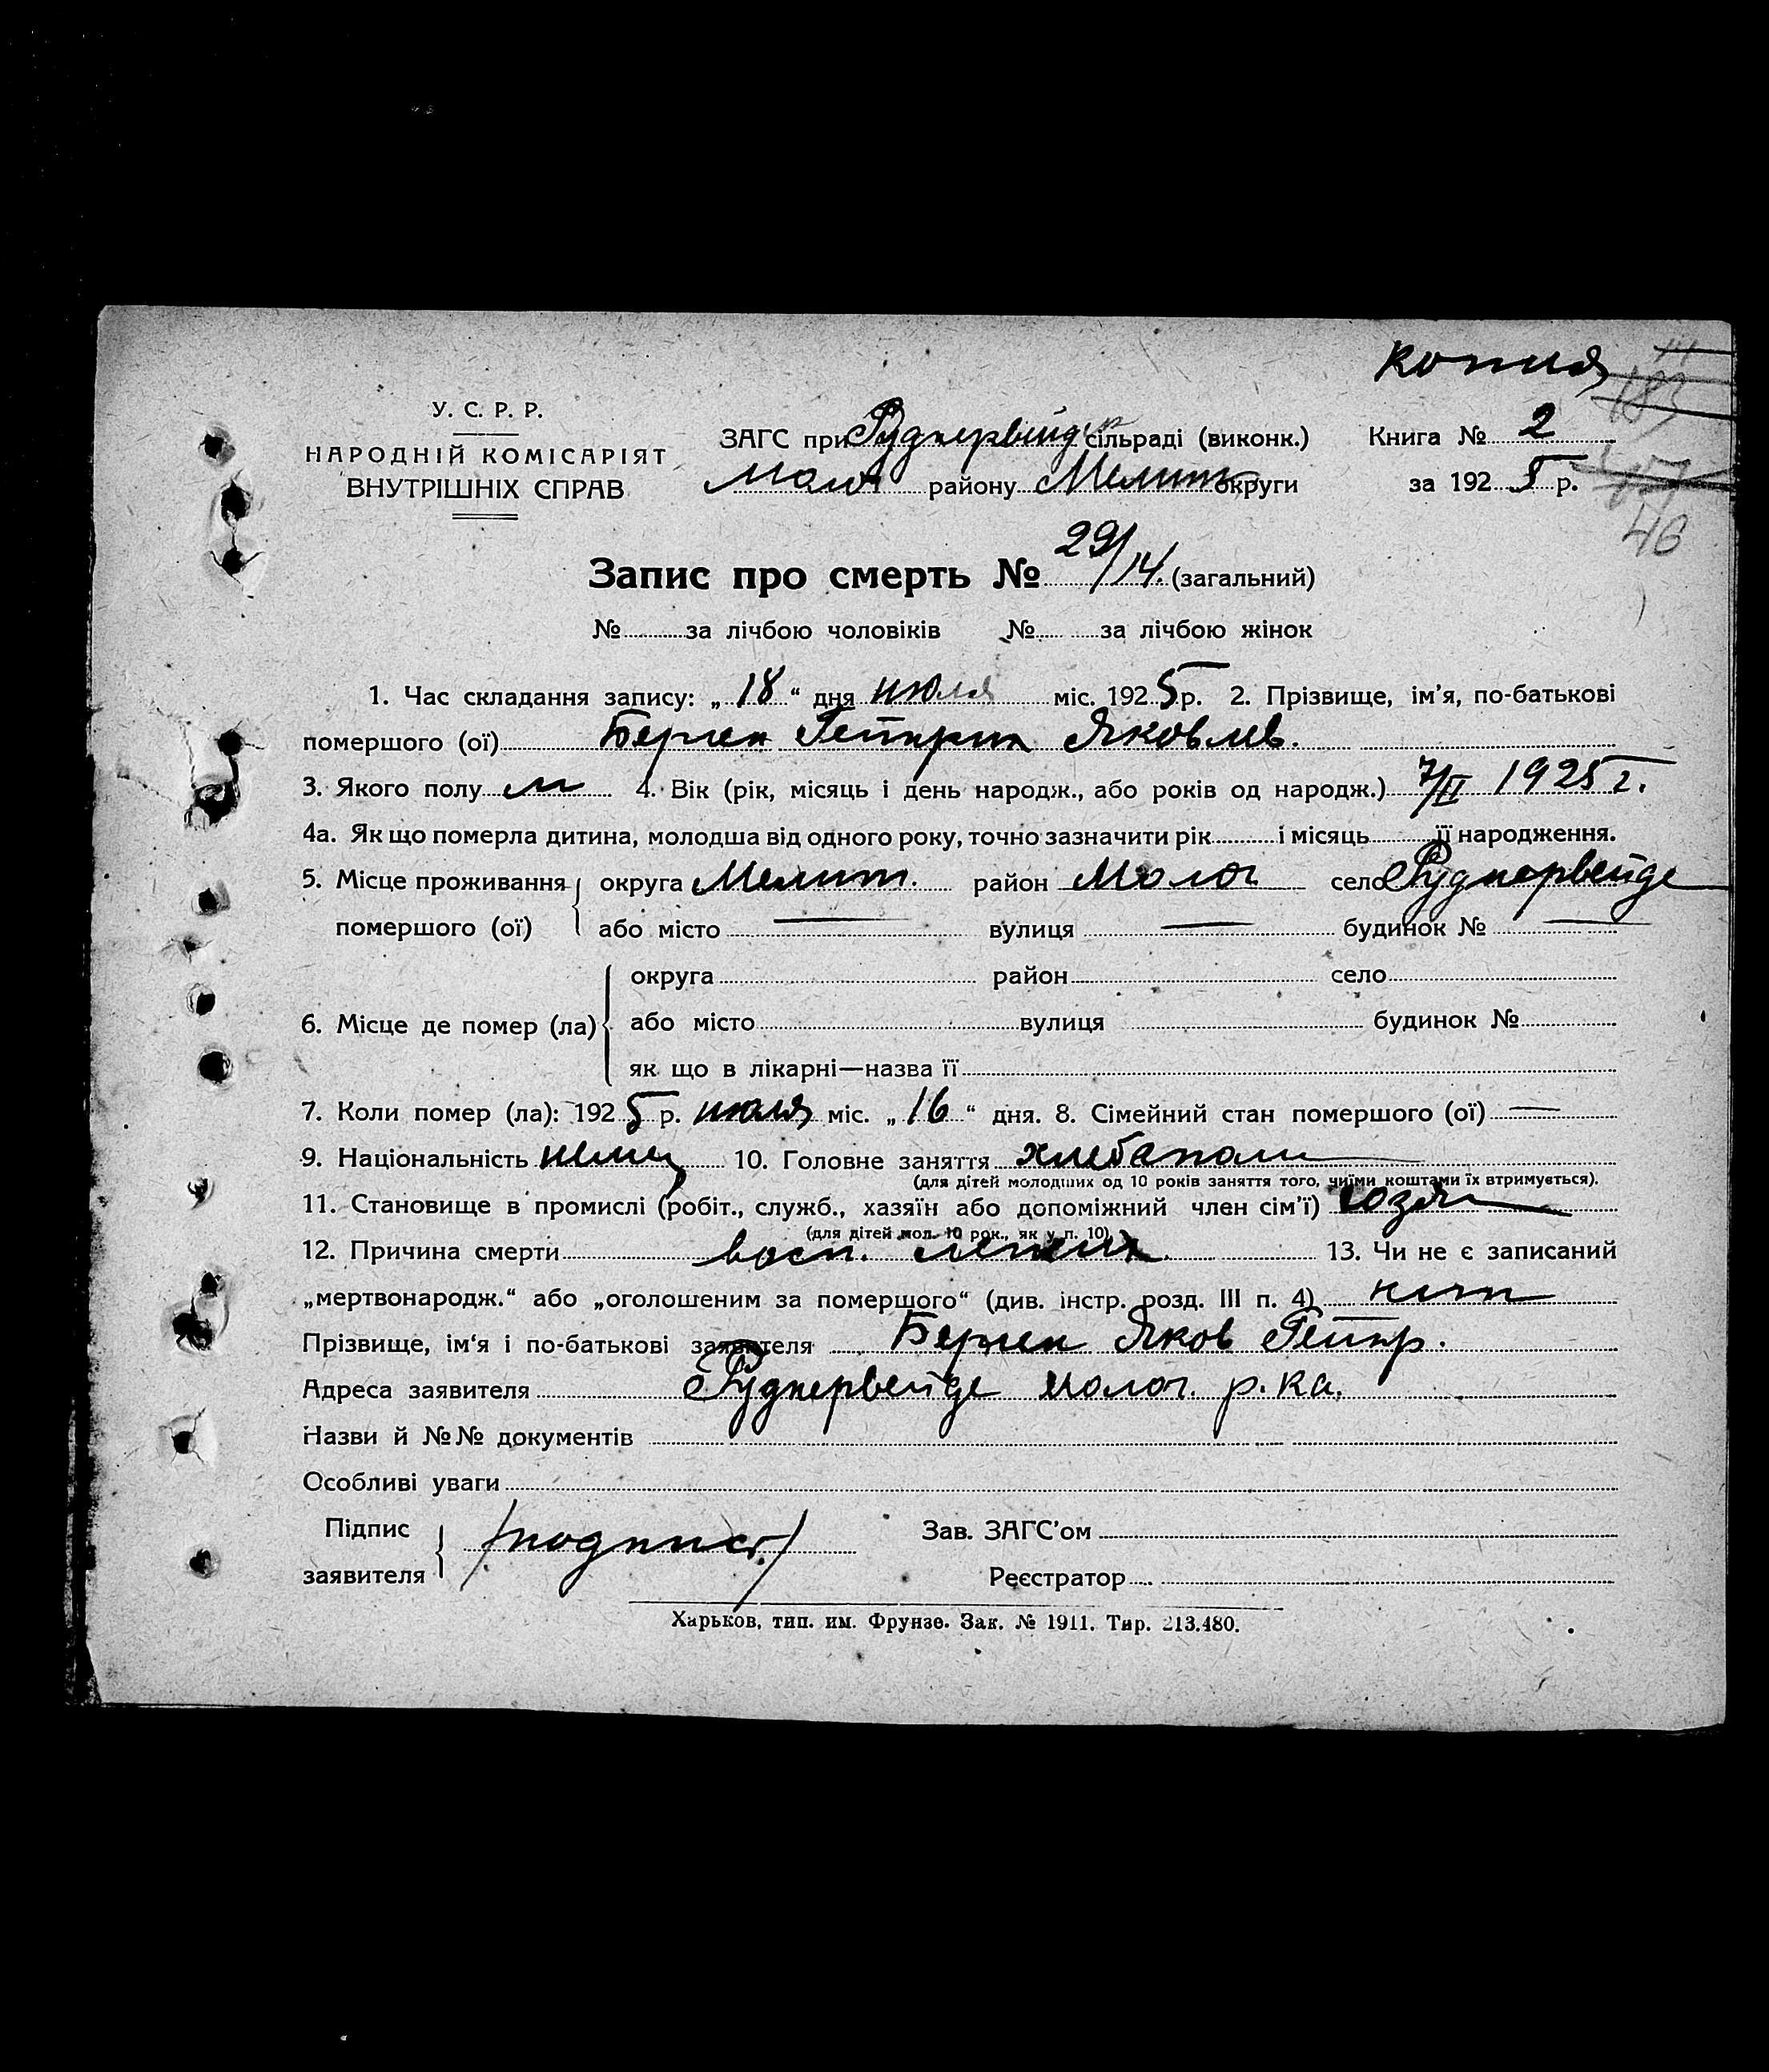 копия
У. С. Р. Р.
НАРОДНІЙ КОМІСАРІЯТ
ВНУТРІШНІХ СПРАВ
ЗАГС при Руднервейдер сільраді (виконк.) Книга № 2
Молоч району Мелит. округи за 1925 р.
46
Запис про смерть № 29/14. (загальний)
№ за лічбою чоловіків № за лічбою жінок
1. Час складання запису: „18“ дня июля міс. 1925 р. 2. Прізвище, ім’я, по-батькові
помершого (ої) Берген Гейнрих Яковлев.
3. Якого полу м 4. Вік (рік, місяць і день народж., або років од народж.) 7/II 1925 г.
4а. Як що померла дитина, молодша від одного року, точно зазначити рік і місяць її народження.
5. Місце проживання округа Мелит. район Молоч село Руднервейде
помершого (ої) або місто — вулиця — будинок № —
округа район село
6. Місце де помер (ла) або місто вулиця будинок №
як що в лікарні—назва її
7. Коли помер (ла): 1925 р. июля міс. „16“ дня. 8. Сімейний стан помершого (ої) —
9. Національність немец 10. Головне заняття хлебапаш
(для дітей молодших од 10 років заняття того, чиїми коштами їх втримується).
11. Становище в промислі (робіт., служб., хазяїн або допоміжний член сім’ї) хозя
(для дітей мол. 10 рок., як у п. 10)
12. Причина смерти восп. легких. 13. Чи не є записаний
„мертвонародж.“ або „оголошеним за помершого“ (див. інстр. розд. III п. 4) нет
Прізвище, ім‘я і по-батькові заявителя Берген Яков Гейнр.
Адреса заявителя Руднервейде молоч. р.ка.
Назви й №№ документів
Особливі уваги
Підпис заявителя /подпись/ Зав. ЗАГС’ом
Реєстратор
Харьков, тип. им. Фрунзе. Зак. № 1911. Тир. 213.480.